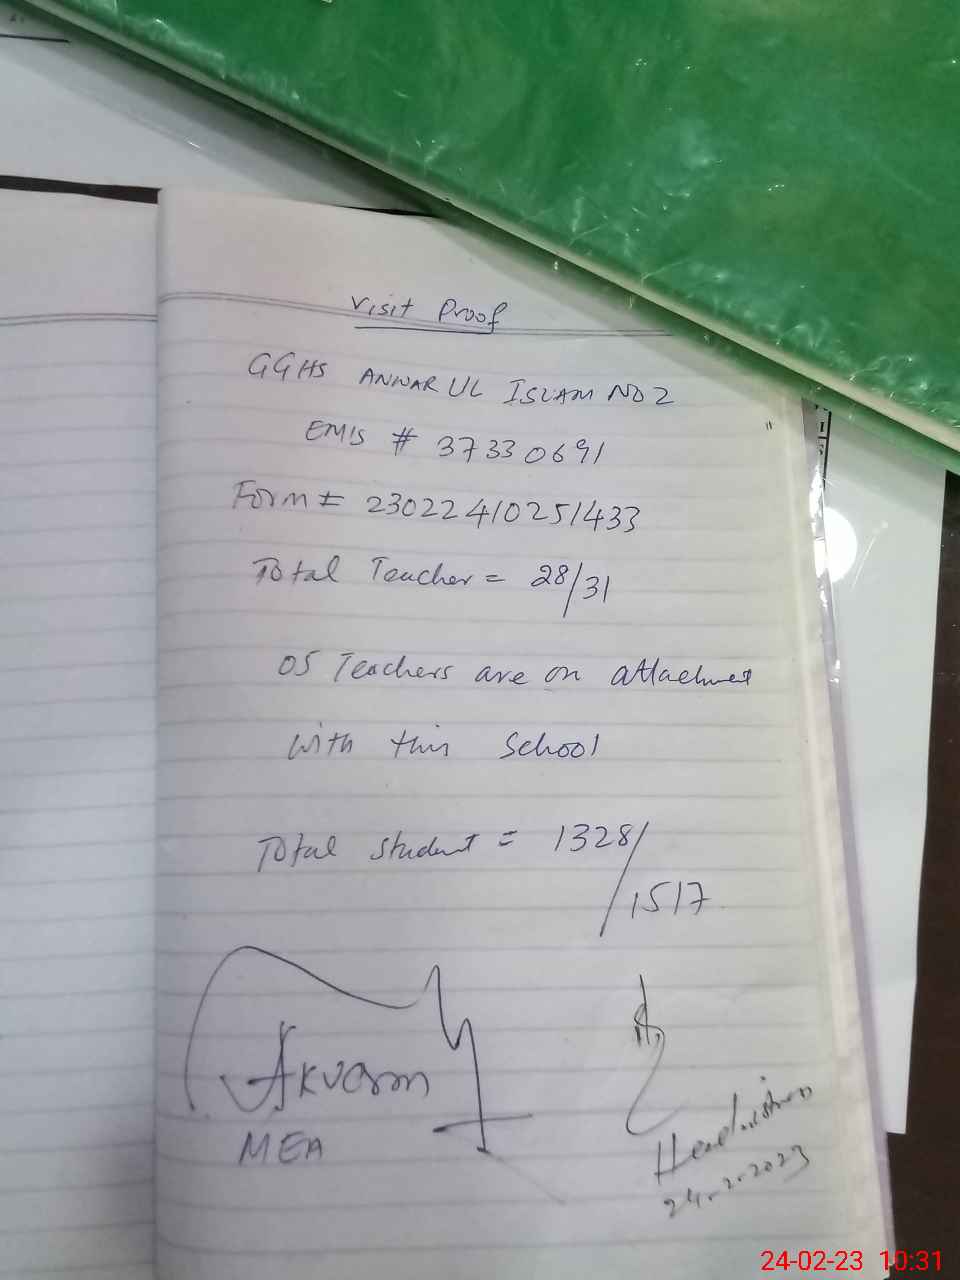 Visit Proof
GGHS ANWAR UL ISLAM NO 2
EMIS # 37330691
Form # 23022410251433
Total Teacher = 28/31
05 Teachers are on attachment
with this School
Total student = 1328/
1517
Akram
MEA
Headmistress
24-2-2023
24-02-23 10:31